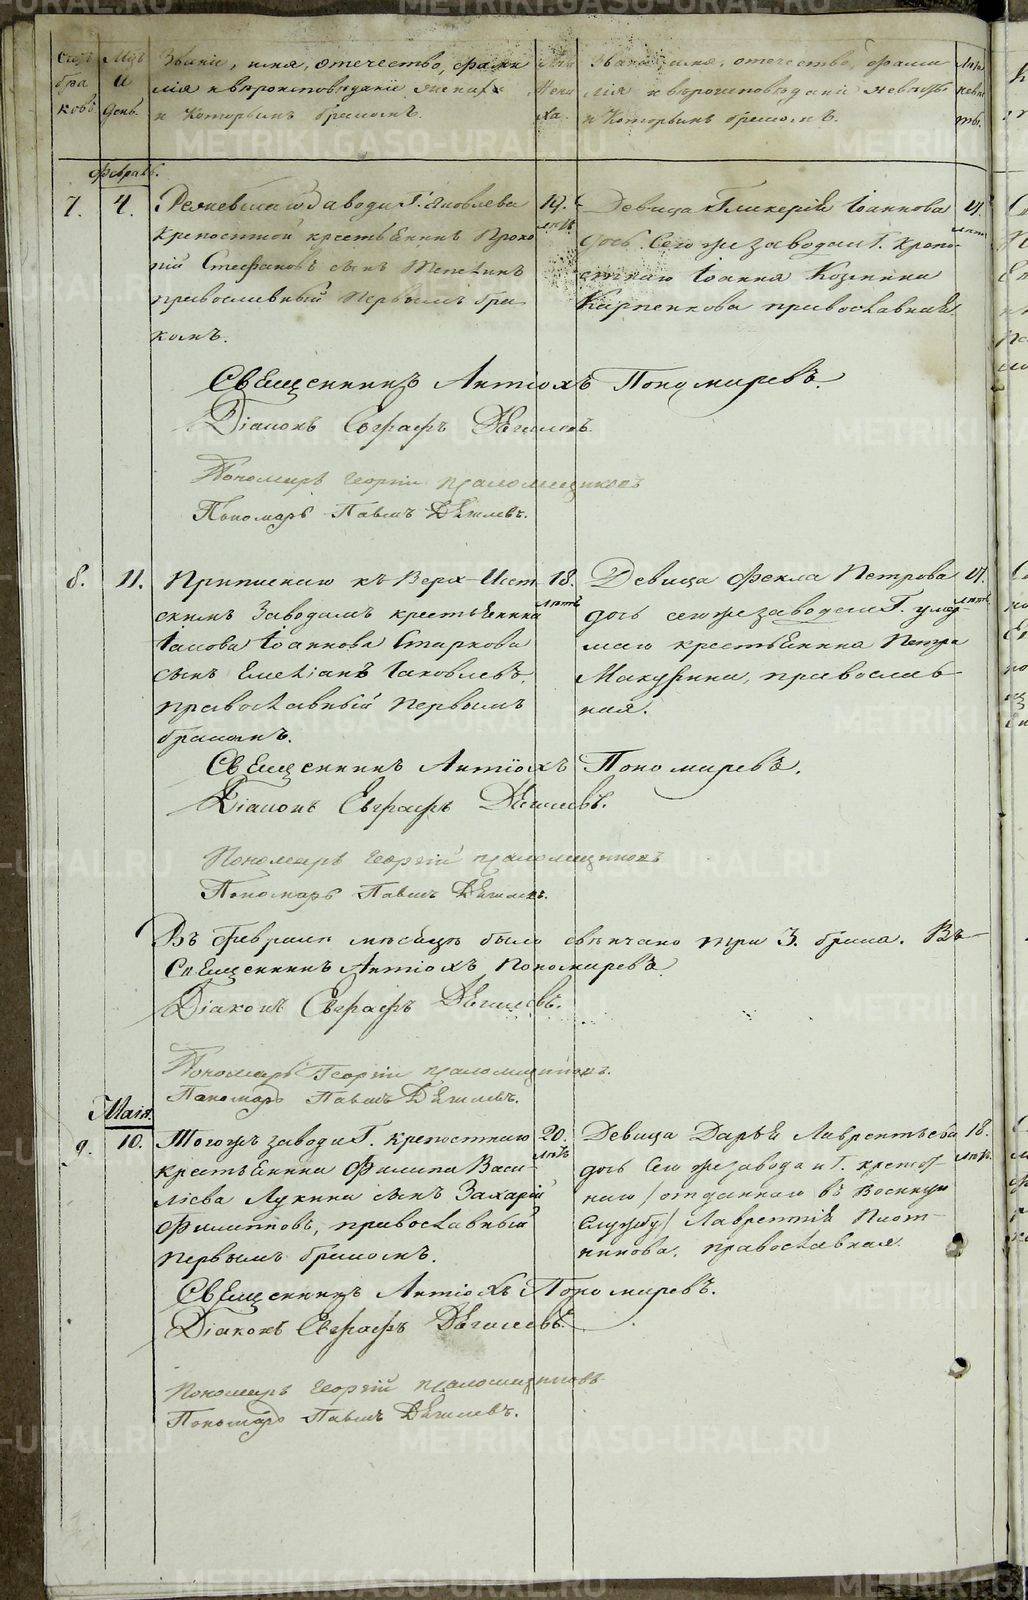 Счетъ браковъ
Мцъ и день
Званіе, имя, отечество, фами
лія и вѣроисповѣданіе жениха
и которымъ бракомъ.
Лѣта жениха.
Званіе, имя, отечество, фами
лія и вѣроисповѣданіе невѣсты
и которымъ бракомъ.
Лѣта невѣсты.
Февраль.
7. 4. завода Г. Яковлева 19. лѣтъ Девица Гликерія Іоаннова
крепостной крестьянинъ Проко
пій Стефановъ сынъ
православный первымъ бра
комъ.
дочь сего же завода Г. крепо-
стнаго Іоанна Козмина
Карпенкова православная.
Священникъ Антіохъ Пономаревъ.
Діаконъ Евграфъ Дягилевъ.
Пономарь Георгій
Пономарь Павелъ Дягилевъ.
8. 11. къ Верх-Исет 18. лѣтъ Девица Фекла Петрова 17. лѣтъ
скимъ заводамъ крестьянина
Іакова Іоаннова Старкова
сынъ Емеліанъ Іаковлевъ,
православный первымъ
бракомъ.
дочь сего же завода Г. умер
шаго крестьянина Петра
Макурина, православ-
ная.
Священникъ Антіохъ Пономаревъ.
Діаконъ Евграфъ Дягилевъ.
Пономарь Георгій
Пономарь Павелъ Дягилевъ.
Въ Февралѣ месяцѣ было свѣнчано три 3. брака. Въ
Священникъ Антіохъ Пономаревъ.
Діаконъ Евграфъ Дягилевъ.
Пономарь Георгій
Пономарь Павелъ Дягилевъ.
Маія.
9. 10. Тогожъ завода Г. крепостнаго 20. лѣтъ Девица Дарья Лаврентьева 18. лѣтъ.
крестьянина Филипа Васи-
лієва Лукина сынъ Захарій
Филиповъ, православный
первымъ бракомъ.
дочь сего же завода Г. крепост
наго /отданнаго въ военную
службу/ Лаврентія Плот-
никова, православная.
Священникъ Антіохъ Пономаревъ.
Діаконъ Евграфъ Дягилевъ.
Пономарь Георгій
Пономарь Павелъ Дягилевъ.
METRIKI.GASO-URAL.RU